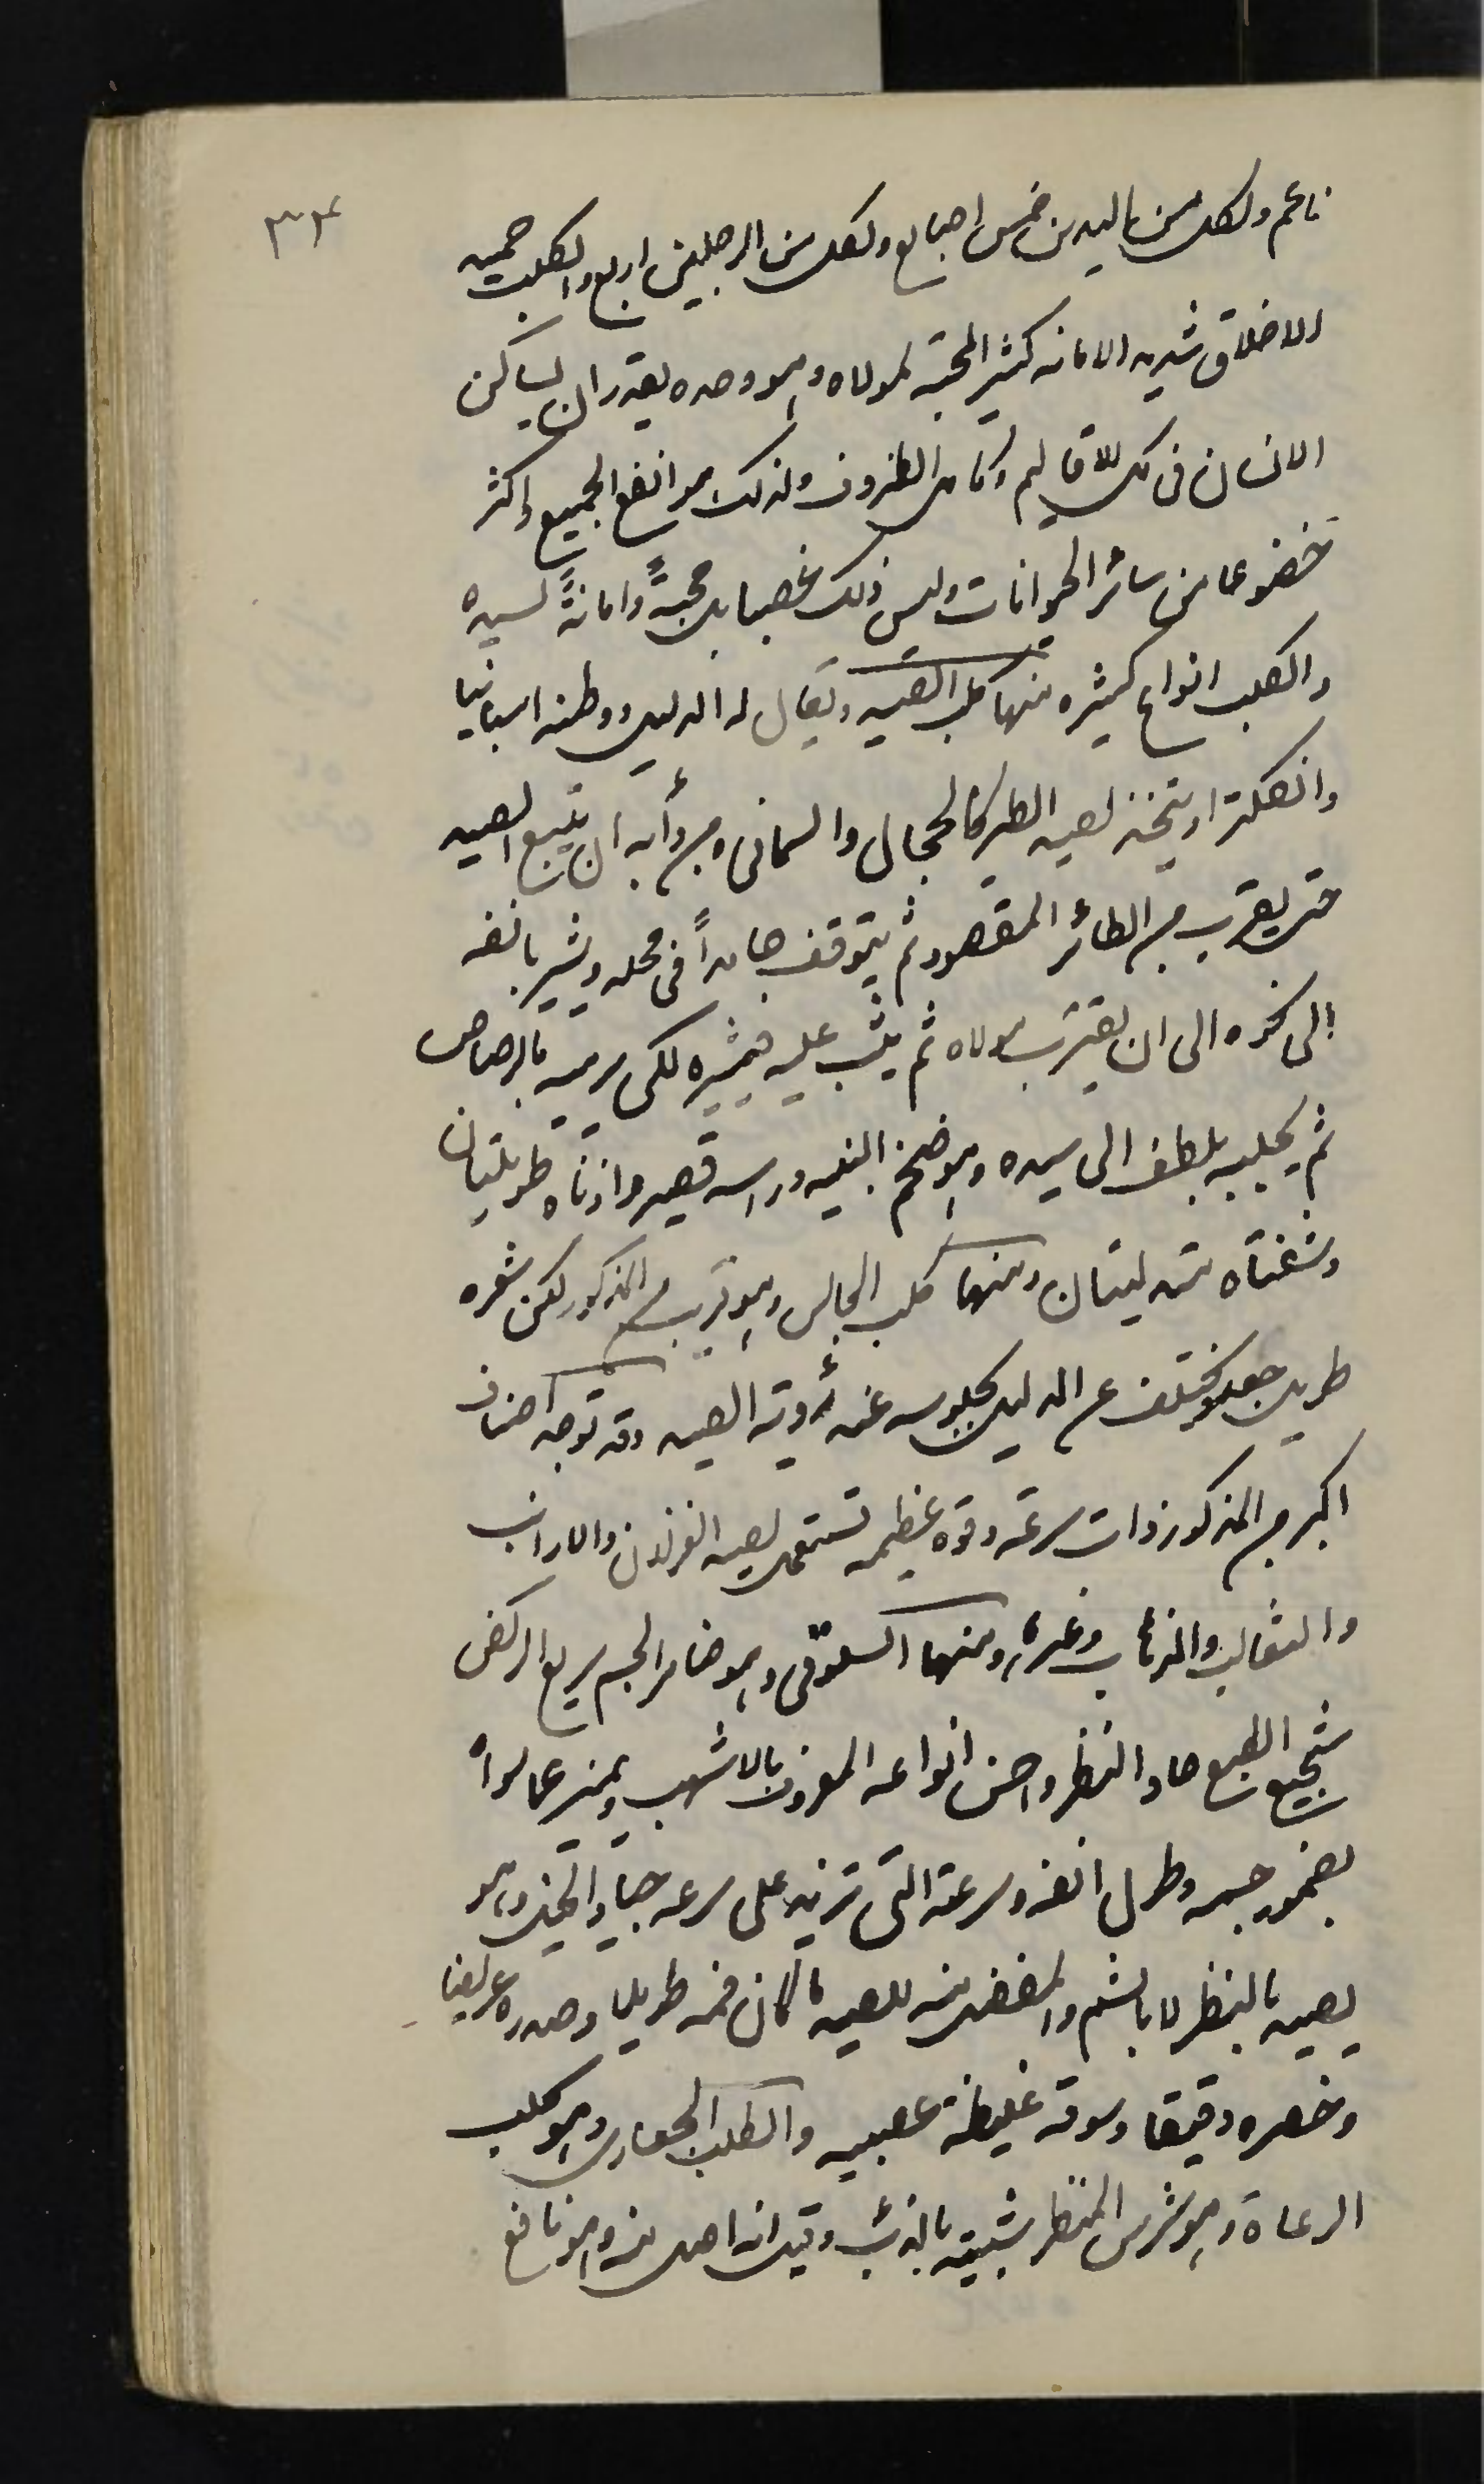 ٣٤
ناعم ولكل من اليدين خمس اصابع ولكل من الرجلين اربع والكلب حميد
الاخلاق شديد الامانه كثير المحبة لمولاه وهو وحده يقدر ان يساكن
الانسان فى كل الاقاليم وكامل الظروف ولذلك هو انفع الجميع واكثر
خضوعا من سائر الحيوانات وليس ذلك غصبا بل محبةً وامانةً لسيده
والكلب انواع كثيره منها كلب الصيد ويقال له الدليل ووطنه اسبانيا
وانكلترا ويتخذ لصيد الطير كالحجال والسمانى ومن دأبه ان يتتبع الصيد
حتى يقرب من الطائر المقصود ثم يتوقف جامداً فى محله ويشير بانفه
الى نحوه الى ان يقترب مولاه ثم يثب عليه فيثيره لكى يرميه بالرصاص
ثم يجلبه بلطف الى سيده وهو ضخم البنيه وراسه قصير واذناه طويلتان
وشفتاه متدليتان ومنها كلب الجالس وهو قريب من المذكور لكن شعره
طويل جعد ويختلف عن الدليل بجلوسه عند رؤية الصيد وقد توجد اصناف
اكبر من المذكور ذات سرعة وقوة عظيمه تستعمل لصيد الغزلان والارانب
والثعالب والذئاب وغيرها ومنها السلوقى وهو ضامر الجسم سريع الركض
شجيع الطبع حاد النظر واحسن انواعه المعروف بالاشهب ويميز عما سواه
بضمور جسمه وطول انفه وسرعته التى تزيد على سرعه جياد الخيل وهو
يصيد بالنظر لا بالشم والمفضل منه للصيد ما كان فمه طويلا وصدره عريضا
وخصره دقيقا وسوقه غليظة عصبيه والكلب الجعارى وهو كلب
الرعاة وهو شرس المنظر شبيه بالذئب وقيل انه اصل منه وهو نافع